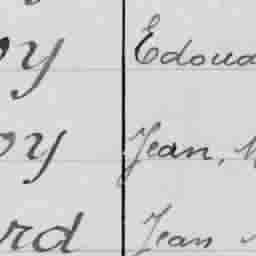 oy Edoua
oy Jean, M
rd Jean